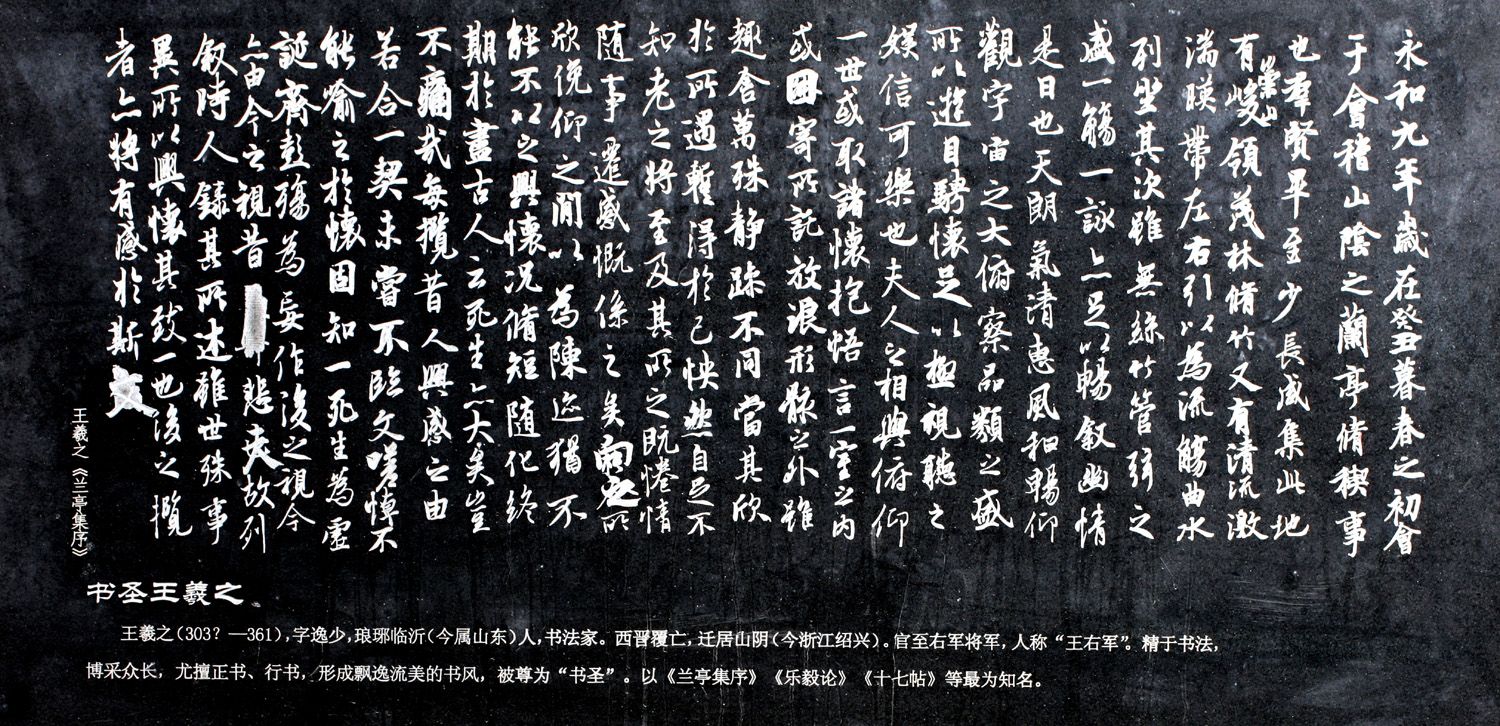 永和九年歲在癸丑暮春之初會
于會稽山陰之蘭亭脩稧事
也羣賢畢至少長咸集此地
有崇山峻領茂林脩竹又有清流激
湍暎帶左右引以為流觴曲水
列坐其次雖無絲竹管弦之
盛一觴一詠亦足以暢敘幽情
是日也天朗氣清惠風和暢仰
觀宇宙之大俯察品類之盛
所以遊目騁懷足以極視聽之
娛信可樂也夫人之相與俯仰
一世或取諸懷抱悟言一室之內
或因寄所託放浪形骸之外雖
趣舍萬殊静躁不同當其欣
於所遇蹔得於己怏然自足不
知老之將至及其所之既惓情
隨事遷感慨係之矣向之所
欣俛仰之閒以為陳迹猶不
能不以之興懷況脩短隨化終
期於盡古人云死生亦大矣豈
不痛哉每攬昔人興感之由
若合一契未嘗不臨文嗟悼不
能喻之於懷固知一死生為虛
誕齊彭殤為妄作後之視今
亦由今之視昔悲夫故列
敘時人錄其所述雖世殊事
異所以興懷其致一也後之攬
者亦將有感於斯文
王羲之《兰亭集序》
书圣王羲之
王羲之(303?—361),字逸少,琅琊临沂(今属山东)人,书法家。西晋覆亡,迁居山阴(今浙江绍兴)。官至右军将军,人称“王右军”。精于书法,
博采众长，尤擅正书、行书，形成飘逸流美的书风，被尊为“书圣”。以《兰亭集序》《乐毅论》《十七帖》等最为知名。